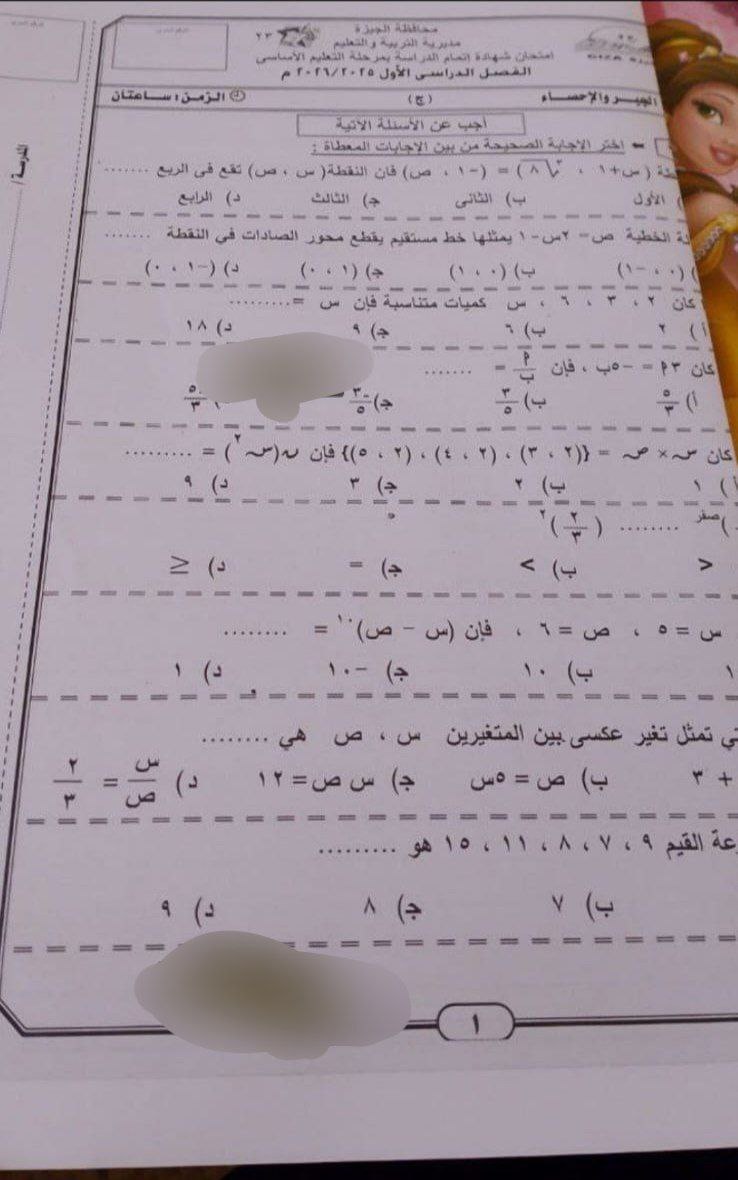 محافظة الجيزة
مديرية التربية والتعليم
امتحان شهادة إتمام الدراسة بمرحلة التعليم الأساسى
الفصل الدراسى الأول ٢٠٢٦/٢٠٢٥ م
٢٣
الجبر والإحصاء (ج) الزمن : ساعتان
المدرسة /
أجب عن الأسئلة الآتية
اختر الإجابة الصحيحة من بين الإجابات المعطاة :
(س+١ ، ∛٨) = (-١ ، ص) فان النقطة (س ، ص) تقع فى الربع .......
الأول ب) الثانى ج) الثالث د) الرابع
الخطية ص= ٢س-١ يمثلها خط مستقيم يقطع محور الصادات فى النقطة .......
(٠ ، -١) ب) (٠ ، ١) ج) (١ ، ٠) د) (-١ ، ٠)
كان ٢ ، ٣ ، ٦ ، س كميات متناسبة فإن س = .........
أ) ٢ ب) ٦ ج) ٩ د) ١٨
كان ٣أ = -٥ب ، فإن أ/ب = .......
أ) ٥/٣ ب) ٣/٥ ج) -٣/٥
كان س × ص = {(٢ ، ٣) ، (٢ ، ٤) ، (٢ ، ٥)} فإن ن(س٢) = .........
أ) ١ ب) ٢ ج) ٣ د) ٩
)صفر ........ (٢/٣)٢
< ب) > ج) = د) ≤
س = ٥ ، ص = ٦ ، فإن (س - ص)١٠ = ........
١ ب) ١٠ ج) -١٠ د) ١
تمثل تغير عكسى بين المتغيرين س ، ص هي ........
+ ٣ ب) ص = ٥س ج) س ص = ١٢ د) س/ص = ٢/٣
القيم ٩ ، ٧ ، ٨ ، ١١ ، ١٥ هو .........
ب) ٧ ج) ٨ د) ٩
١